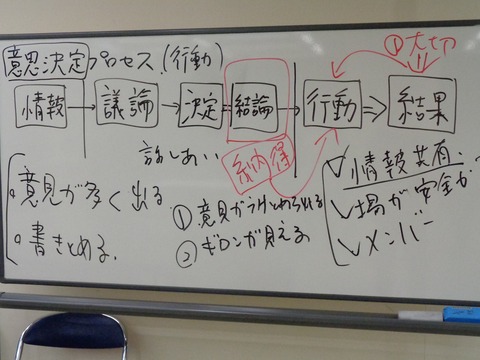 意思決定プロセス.(行動)
① 大切
情報 → 議論 → 決定 = 結論 → 行動 ⇒ 結果
話しあい
納得
意見が多く出る
書きとめる.
① 意見がうけとめられる
② ギロンが見える
✓ 情報共有.
✓ 場が安全か?
✓ メンバー